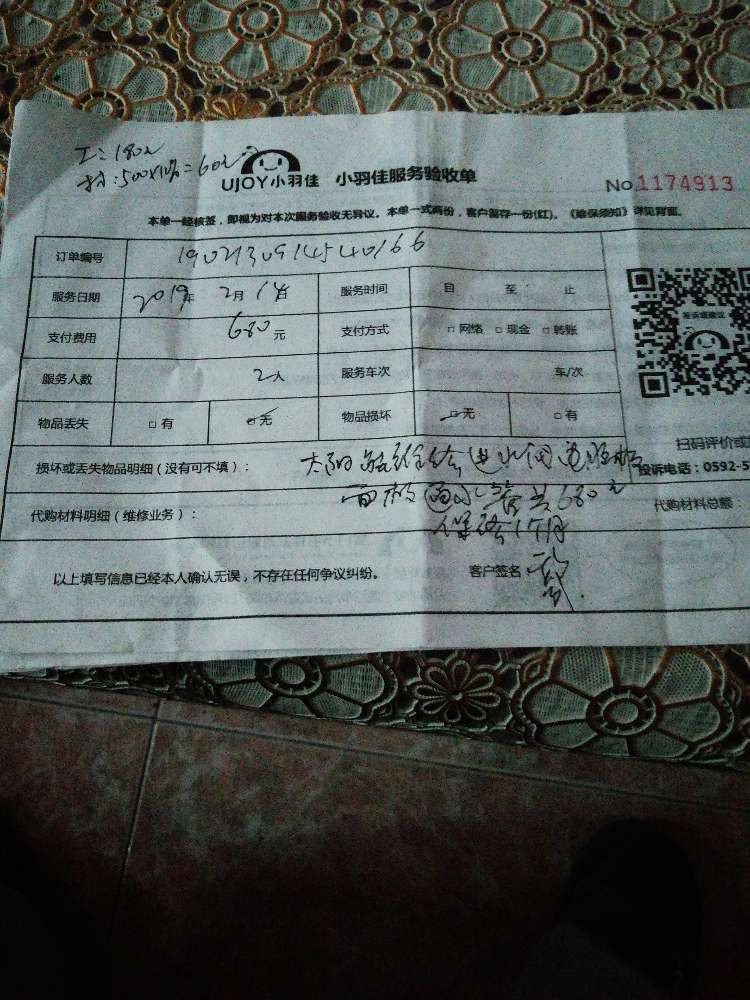 工：180元
UJOY小羽佳 小羽佳服务验收单
No 1174913
本单一经核签，即视为对本次服务验收无异议。本单一式两份，客户留存一份(红)。《维保须知》详见背面。
订单编号 190213091454016 6
服务日期 2019年 2月 14日 服务时间 自 至 止
支付费用 680元 支付方式 □网络 □现金 □转账
服务人数 2人 服务车次 车/次
物品丢失 □有 □无 物品损坏 □无 □有
扫码评价或
损坏或丢失物品明细（没有可不填）： 太阳能维修进水阀
投诉电话：0592-5
共680元
代购材料明细（维修业务）： 代购材料总额：
保修1个月
以上填写信息已经本人确认无误，不存在任何争议纠纷。 客户签名